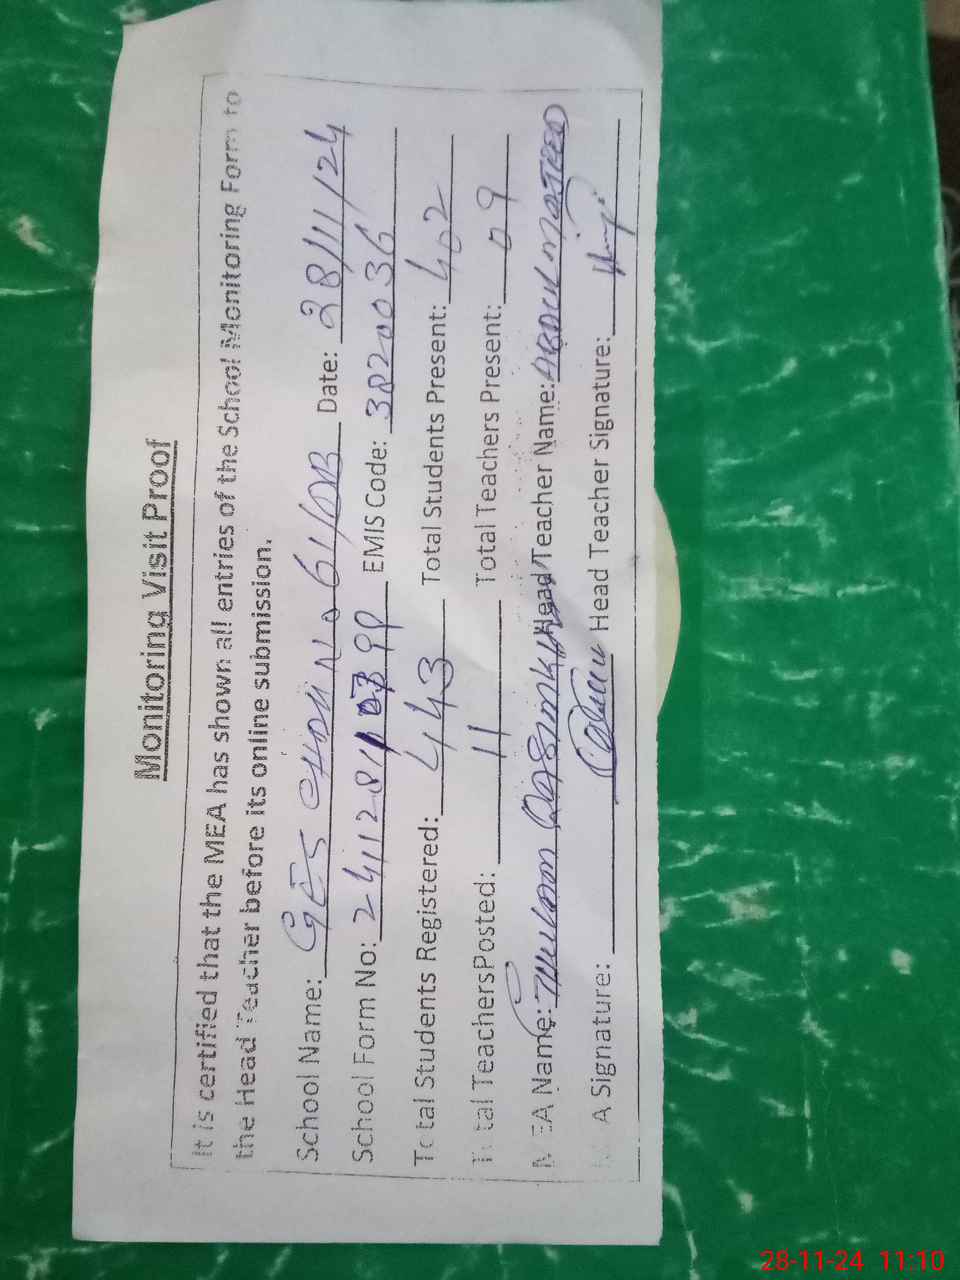 Monitoring Visit Proof
It is certified that the MEA has shown all entries of the School Monitoring Form to
the Head Teacher before its online submission.
School Name: GES CHAK No. 61/DB Date: 28/11/24
School Form No: EMIS Code: 3820036
Total Students Registered: 443 Total Students Present: 402
Total TeachersPosted: 11 Total Teachers Present: 09
MEA Name: Head Teacher Name: ABDUL MAJEED
A Signature: Head Teacher Signature:
28-11-24 11:10